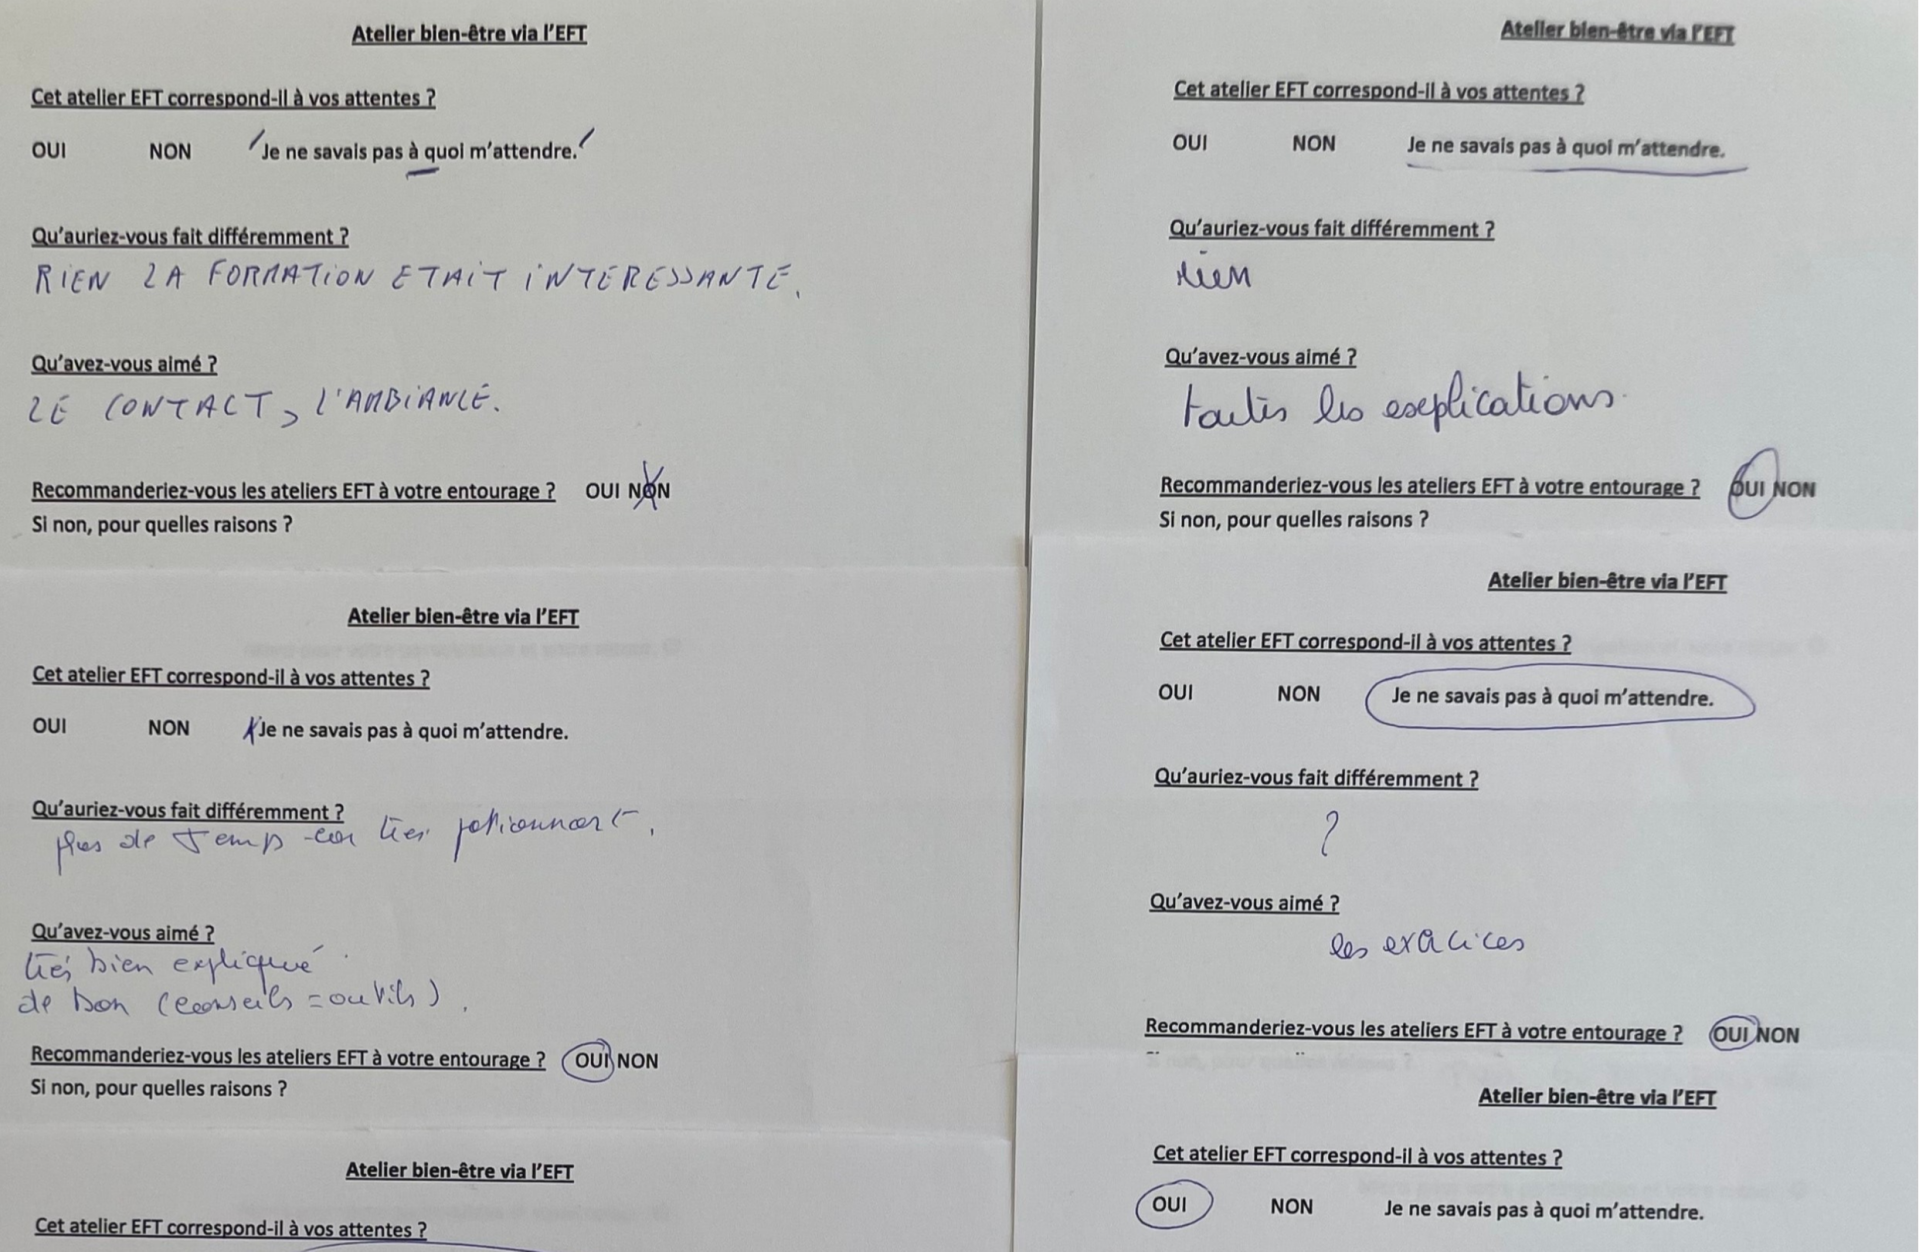 Atelier bien-être via l'EFT
Cet atelier EFT correspond-il à vos attentes ?
OUI NON Je ne savais pas à quoi m'attendre.
Qu'auriez-vous fait différemment ?
RIEN LA FORMATION ETAIT INTERESSANTE.
Qu'avez-vous aimé ?
LE CONTACT, L'AMBIANCE.
Recommanderiez-vous les ateliers EFT à votre entourage ? OUI NON
Si non, pour quelles raisons ?
Atelier bien-être via l'EFT
Cet atelier EFT correspond-il à vos attentes ?
OUI NON Je ne savais pas à quoi m'attendre.
Qu'auriez-vous fait différemment ?
rien
Qu'avez-vous aimé ?
toutes les explications.
Recommanderiez-vous les ateliers EFT à votre entourage ? OUI NON
Si non, pour quelles raisons ?
Atelier bien-être via l'EFT
Cet atelier EFT correspond-il à vos attentes ?
OUI NON Je ne savais pas à quoi m'attendre.
Qu'auriez-vous fait différemment ?
plus de temps car très
Qu'avez-vous aimé ?
très bien expliqué
de bon (conseils = outils).
Recommanderiez-vous les ateliers EFT à votre entourage ? OUI NON
Si non, pour quelles raisons ?
Atelier bien-être via l'EFT
Cet atelier EFT correspond-il à vos attentes ?
OUI NON Je ne savais pas à quoi m'attendre.
Qu'auriez-vous fait différemment ?
?
Qu'avez-vous aimé ?
les exercices
Recommanderiez-vous les ateliers EFT à votre entourage ? OUI NON
Atelier bien-être via l'EFT
Cet atelier EFT correspond-il à vos attentes ?
Atelier bien-être via l'EFT
Cet atelier EFT correspond-il à vos attentes ?
OUI NON Je ne savais pas à quoi m'attendre.